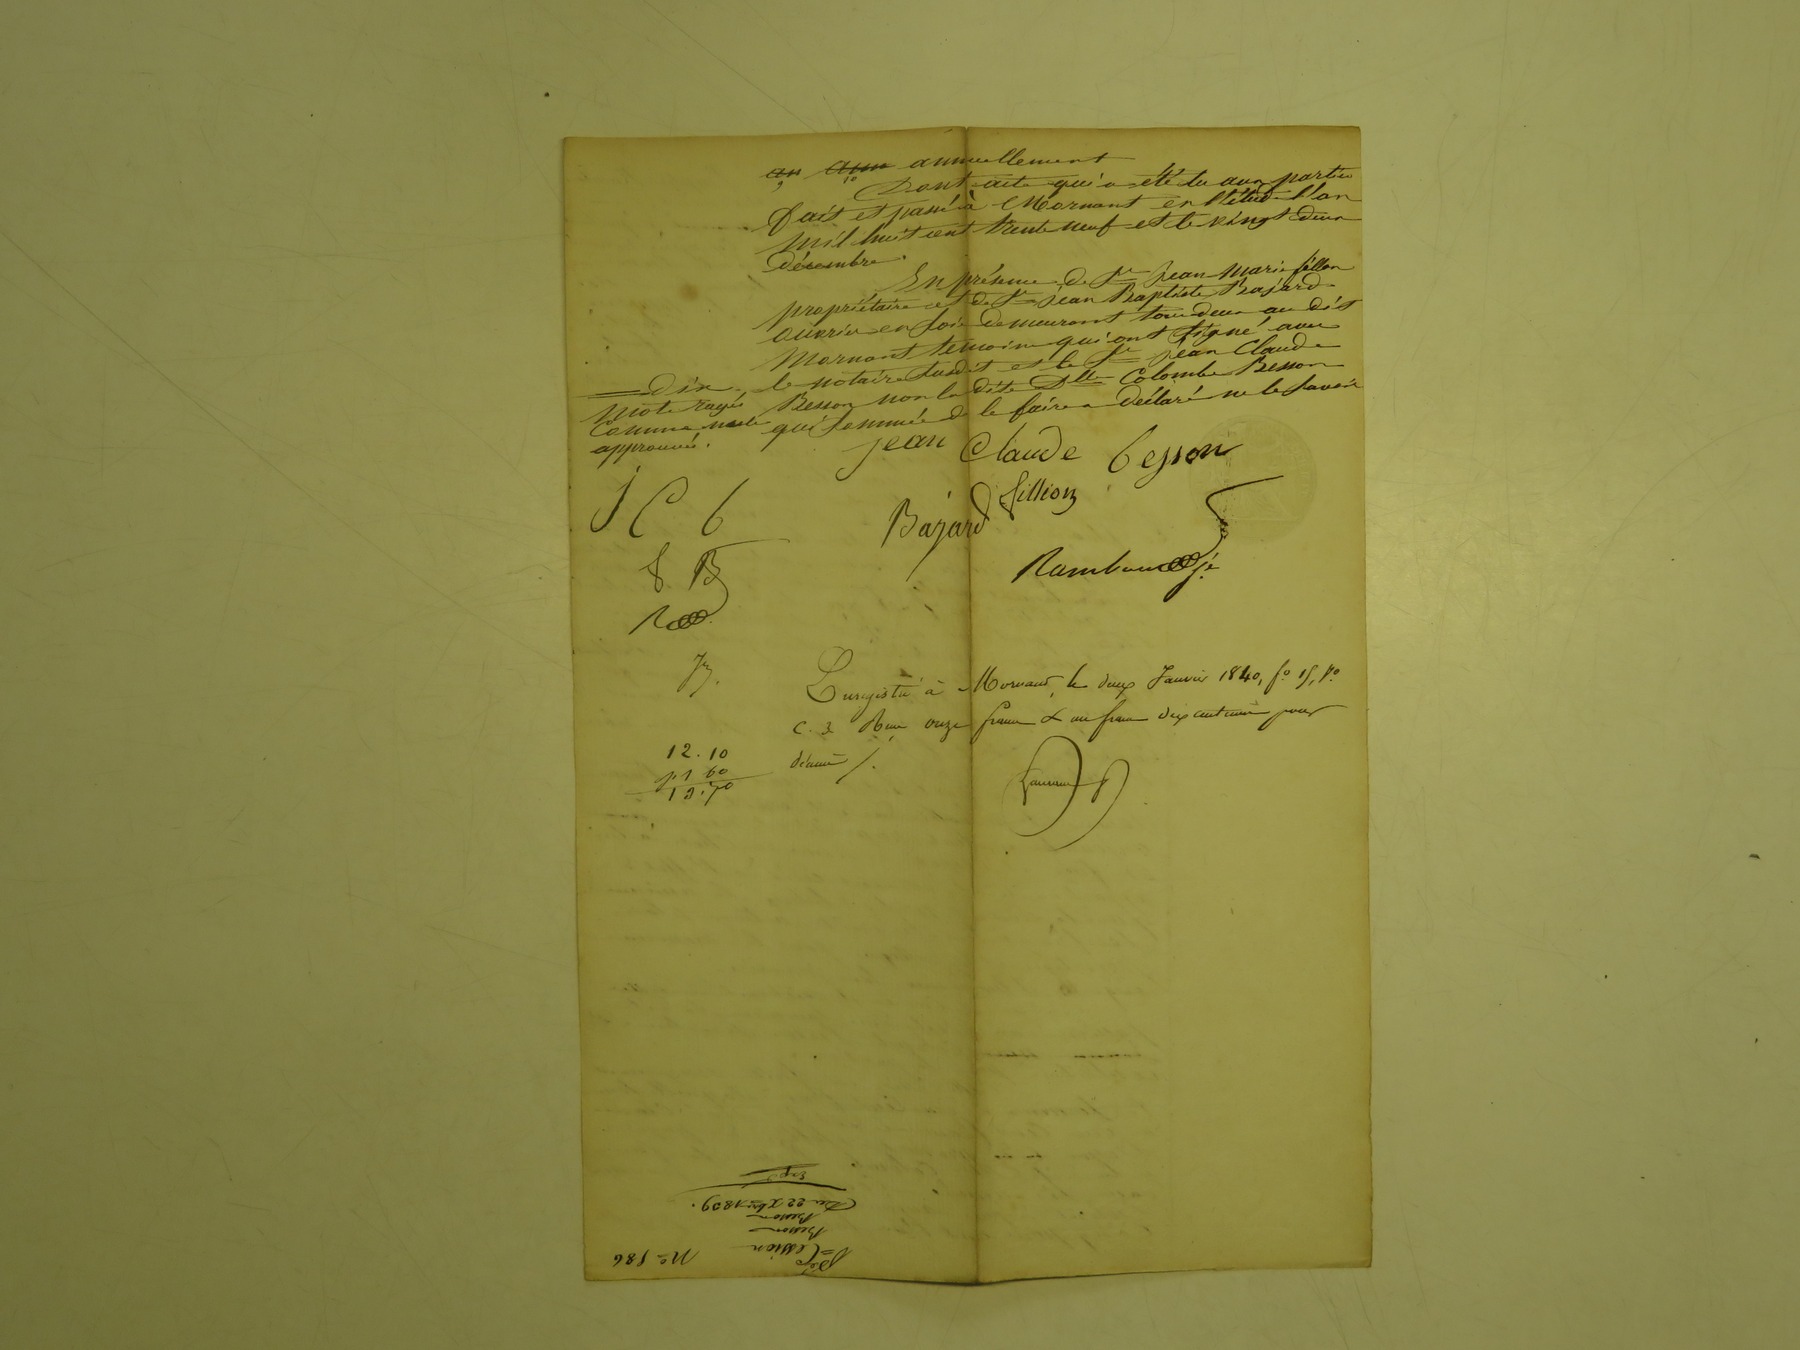 an ann annuellement
9 10
Dont acte qui a été lu aux parties
fait et passé à Mornant en l'étude l'an
mil huit cent trente neuf et le vingt deux
décembre.
En présence de Sr Jean Marie fillon
propriétaire et de Sr Jean Baptiste Bajard
ouvrier en soie demeurant tous deux au dit
Mornant temoins qui ont signé avec
le notaire susdit et le Sr jean Claude
Besson non la dite Dlle Colombe Besson
qui sommée de le faire a déclaré ne le savoir
Dix
mots rayés
comme nuls
approuvés.
jean Claude besson
fillion
Bajard
j C b
f B
R
Enregistré à Mornant, le deux Janvier 1840, fo 15, Vo
c. 3 Reçu onze francs & un franc dix centimes pour
décime /.
12.10
1 60
13.70
No 586
Cession
Besson
Besson
Du 22 Xbre 1839.
Expé